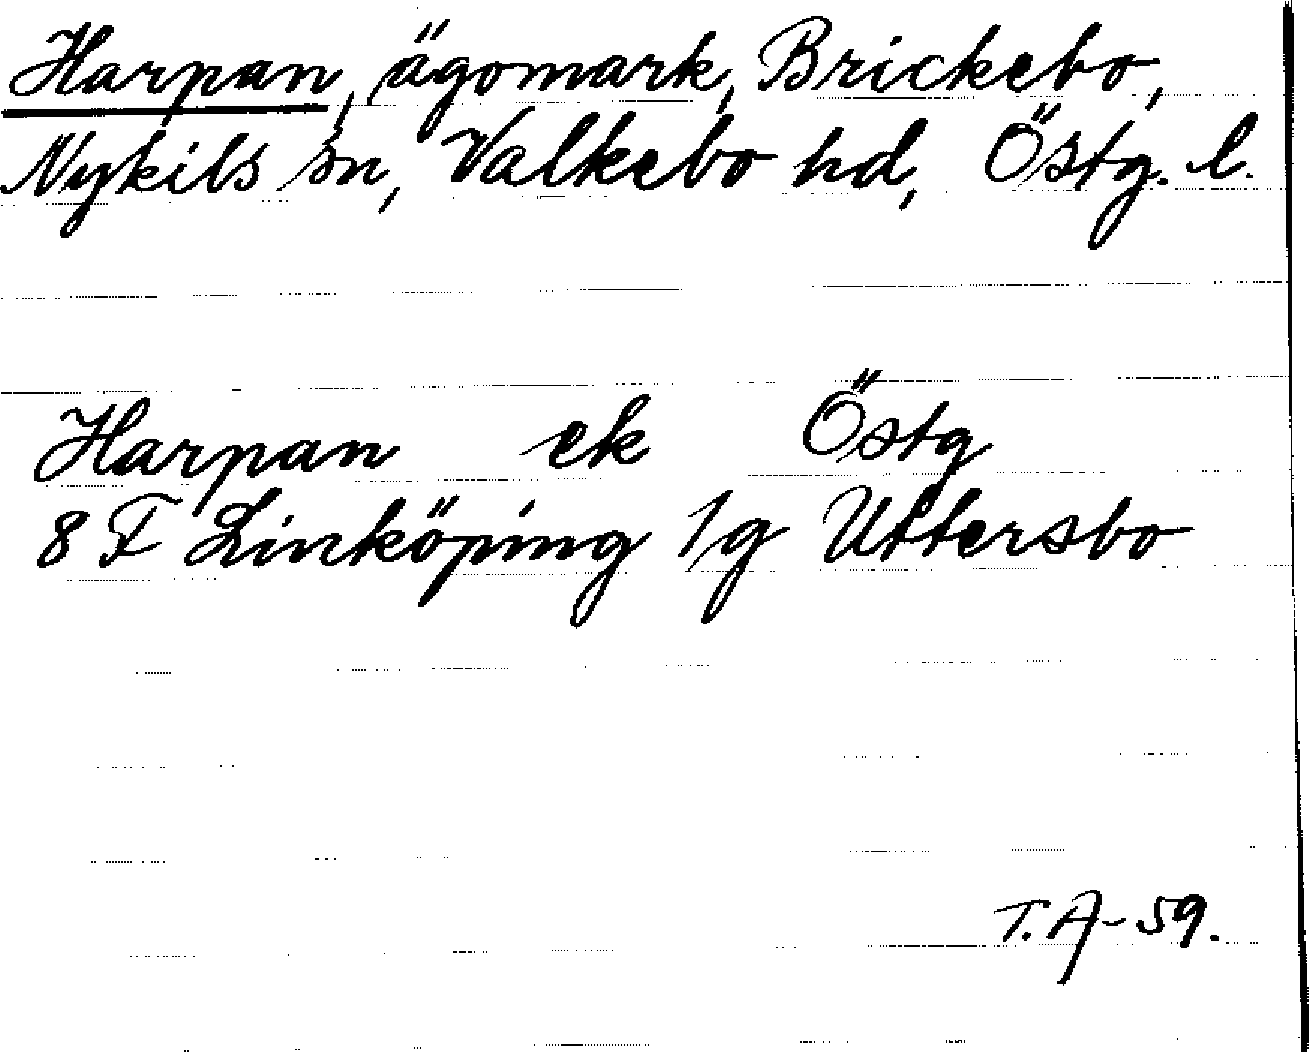 Harpan, ägomark, Brickebo,
Nykils sn, Valkebo hd, Östg. l.
Harpan ek Östg
8 F Linköping 1g Uttersbo
T.A-59.